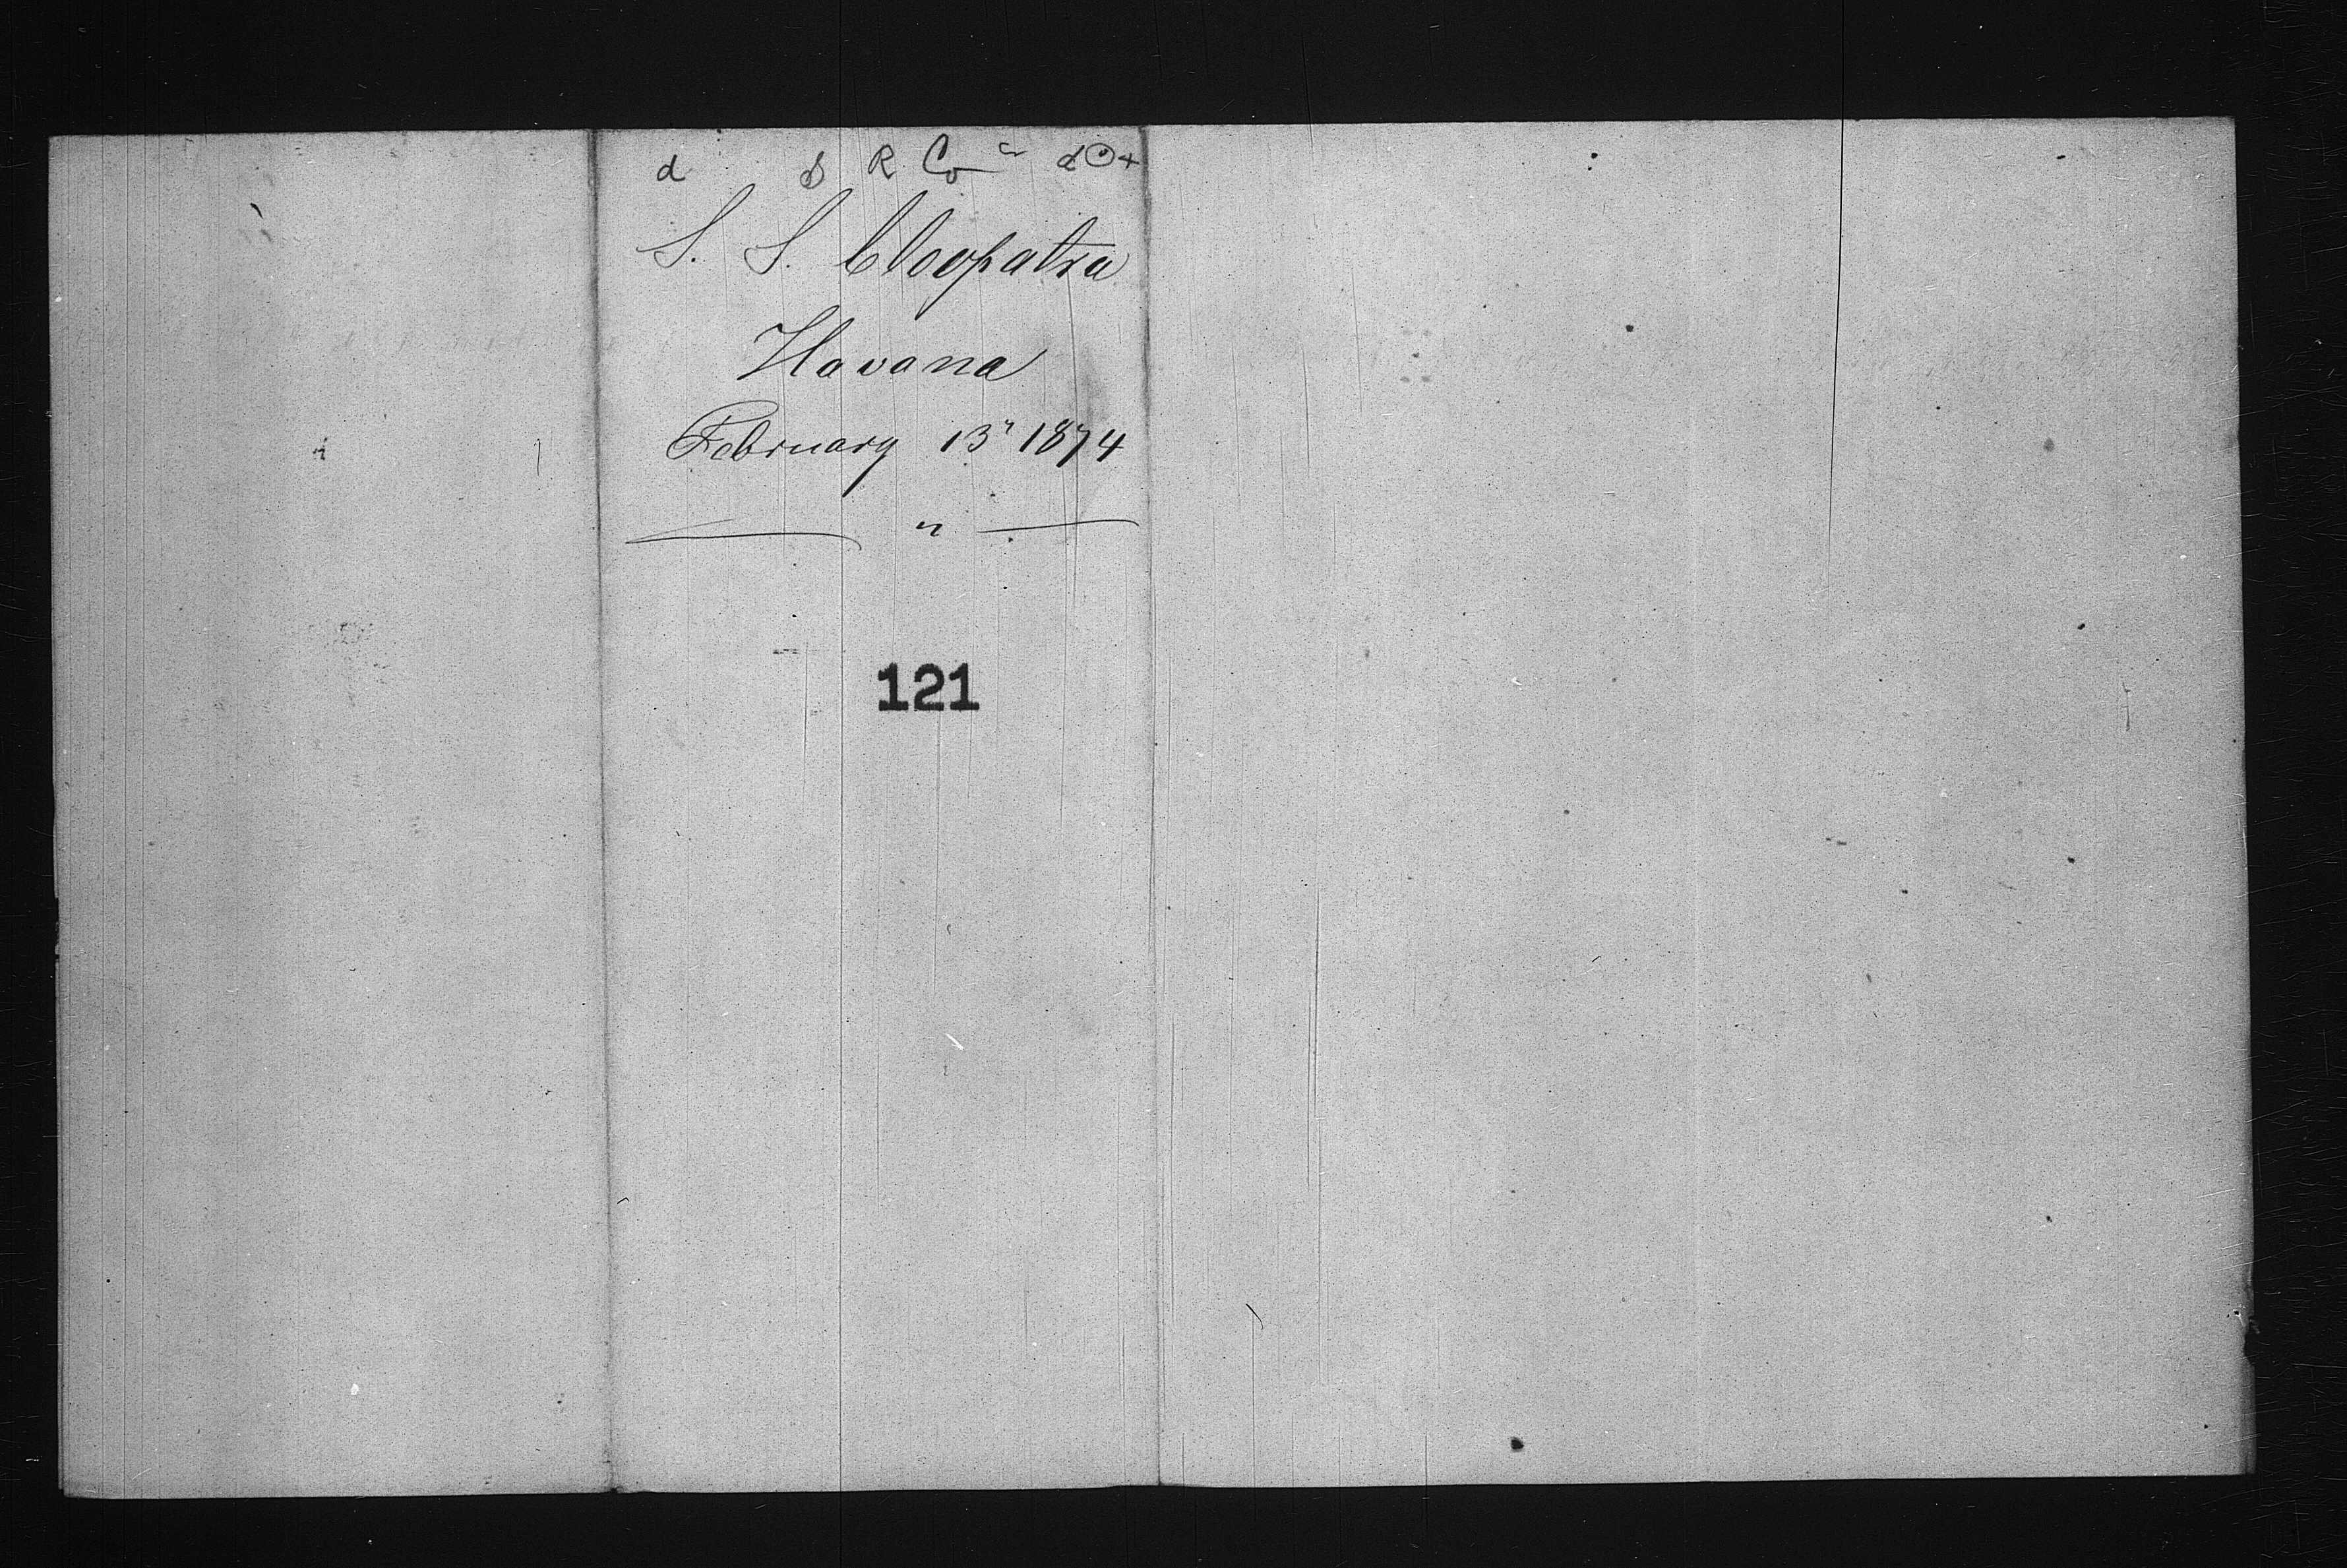 d S R Co
S. S. Cleopatra
Havana
February 13" 1874
"
121